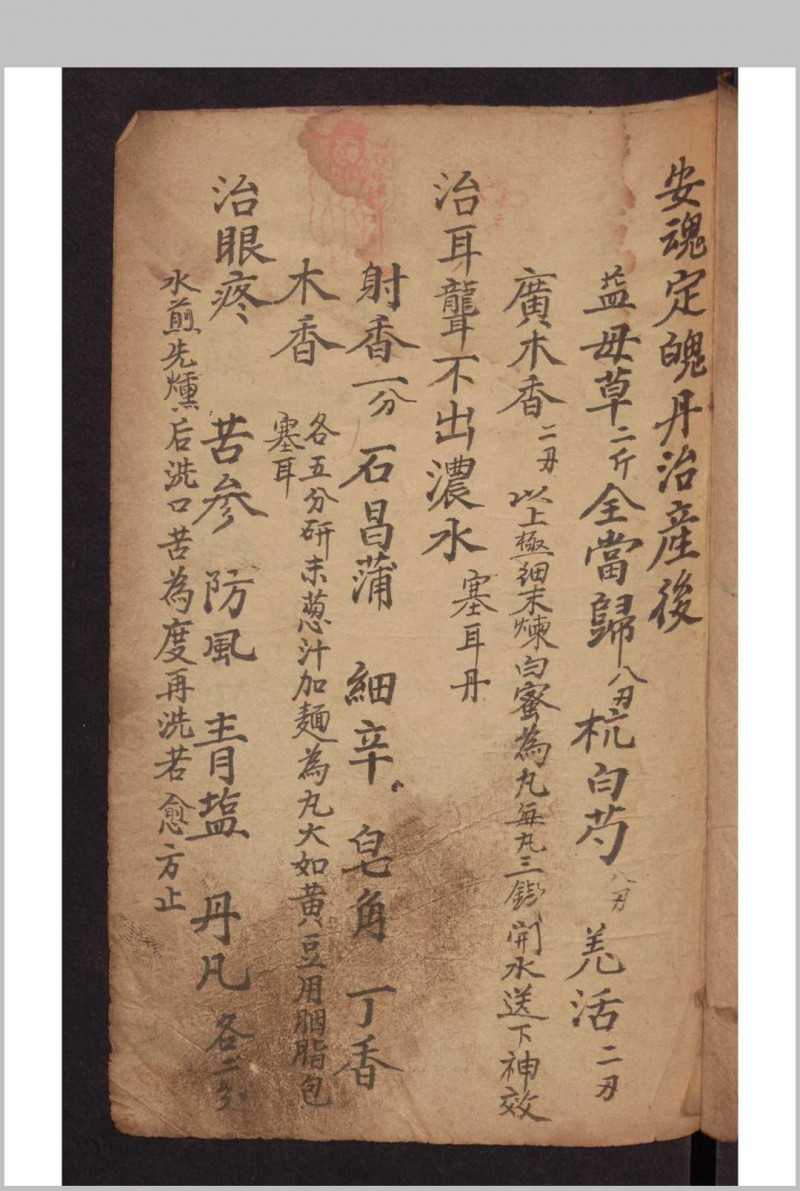 安魂定魄丹治産後
益母草二斤全當歸八刄杭白芍八刄羗活二刄
廣木香二刄以上極細末煉白蜜為丸每丸三錢開水送下神效
治耳聾不出濃水塞耳丹
射香一分石昌蒲細辛皂角丁香
木香各五分研末葱汁加麵為丸大如黄豆用胭脂包
塞耳
治眼疼苦參防風青塩丹凡各二分
水煎先燻后洗口苦為度再洗若愈方止